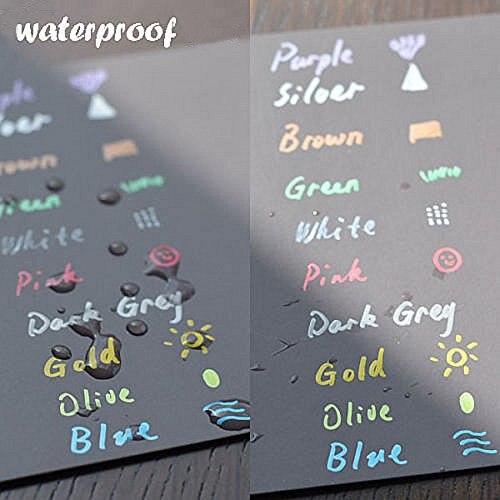 waterproof
ple
lver
rown
reen
White
Pink
Dark Grey
Gold
Olive
Blue
Purple
Silver
Brown
Green
White
Pink
Dark Grey
Gold
Olive
Blue